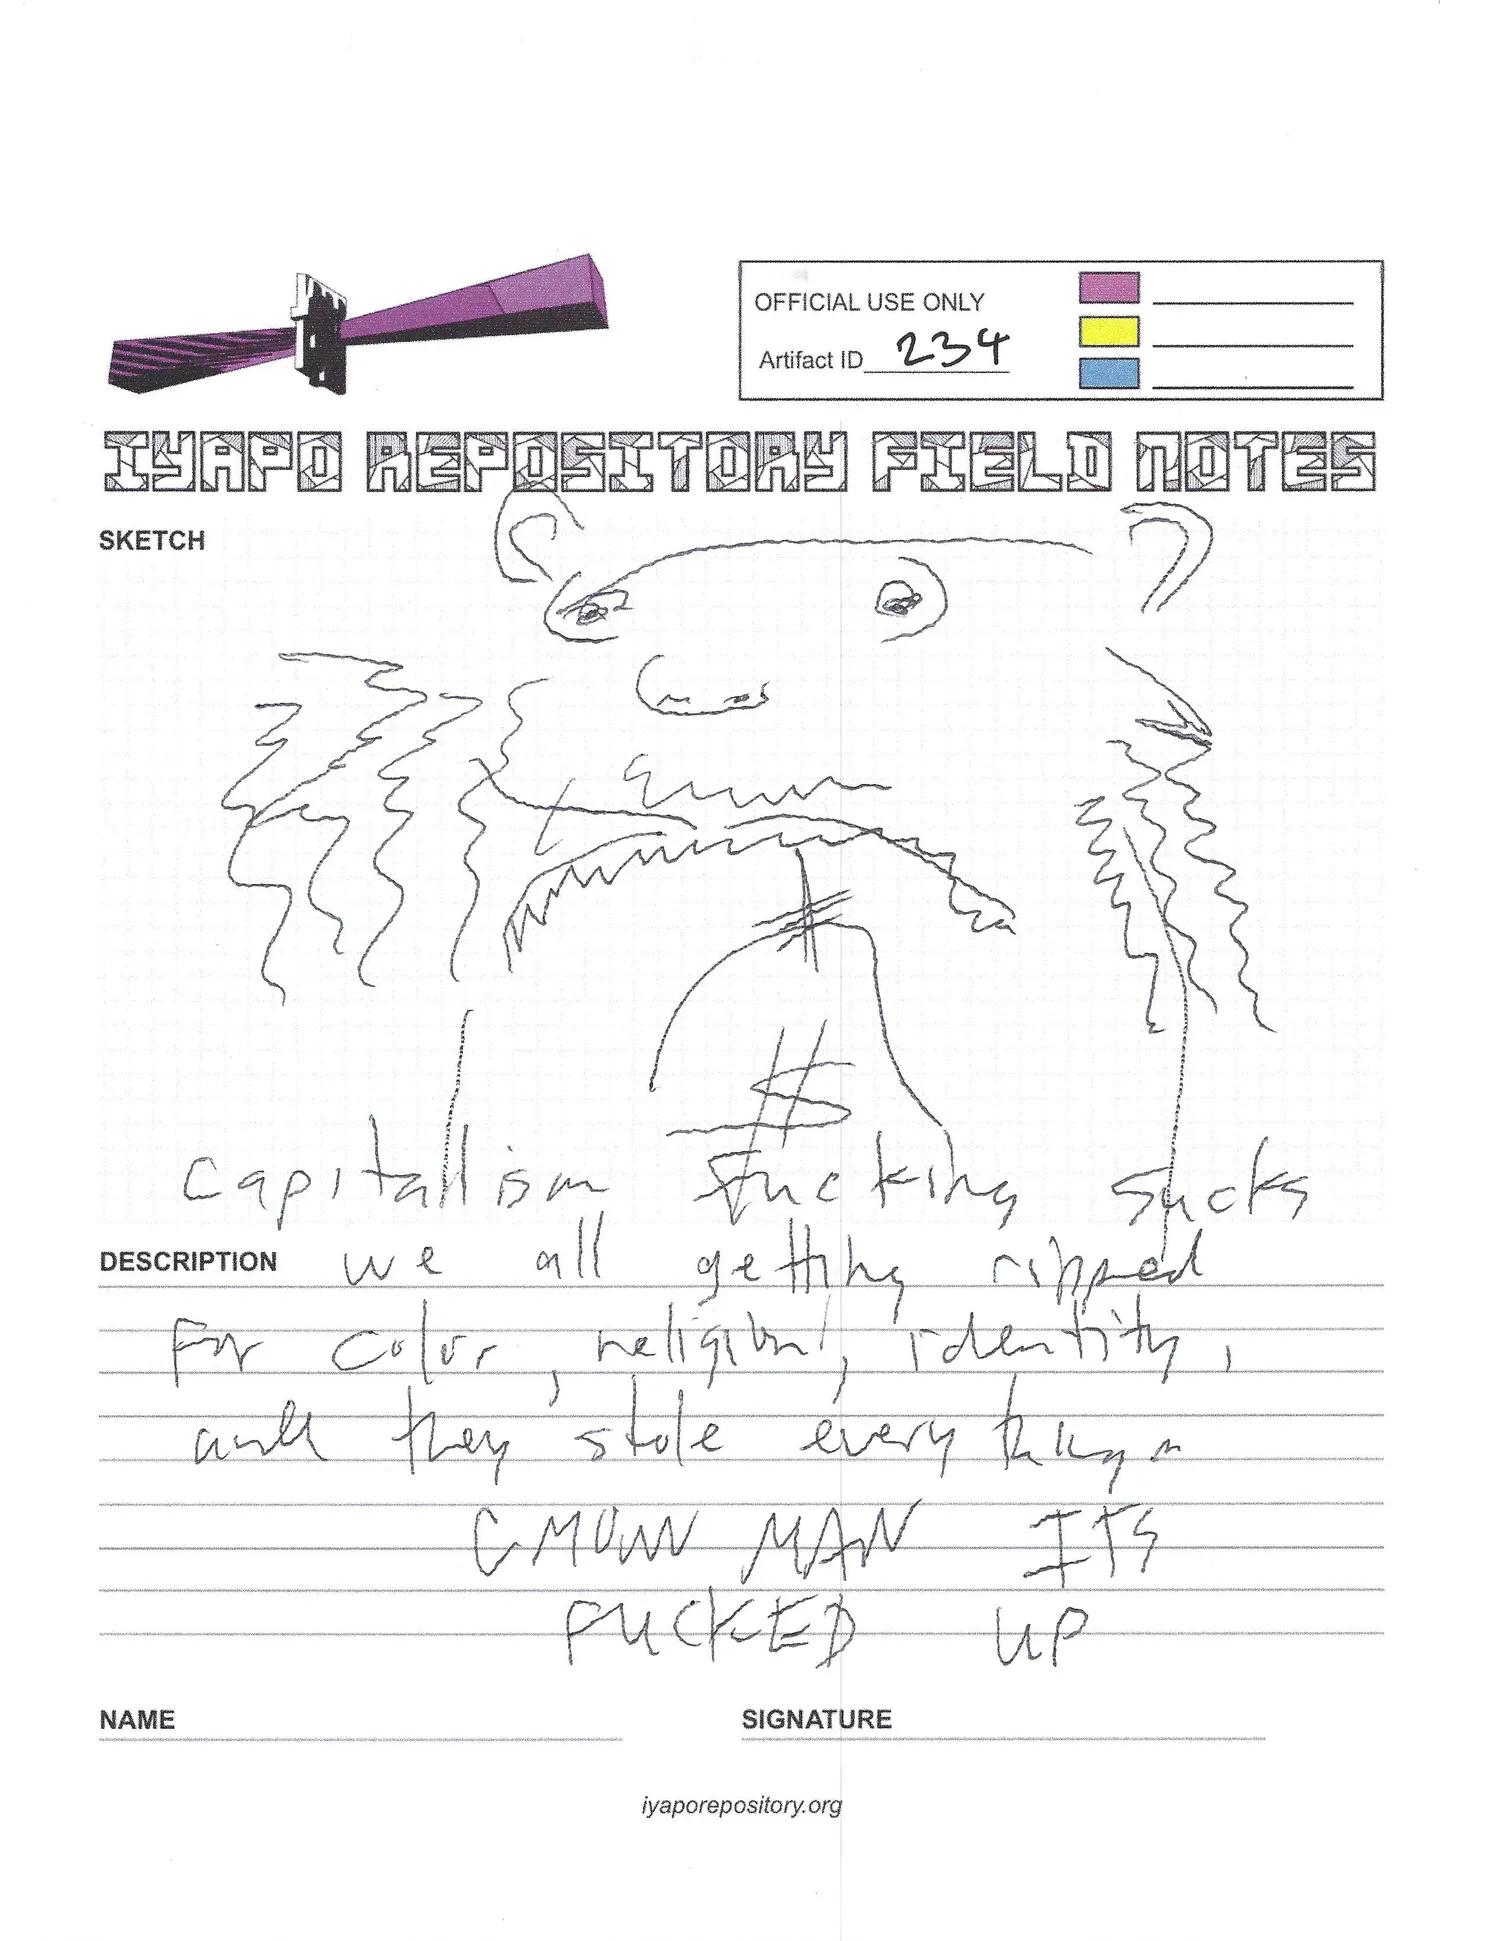 OFFICIAL USE ONLY
Artifact ID 234
IYAPO REPOSITORY FIELD NOTES
SKETCH
$
Capitallism Fucking sucks
DESCRIPTION we all getting ripped
For color, religion, identity,
and they stole everything
CMONN MAN ITS
FUCKED UP
NAME SIGNATURE
iyaporepository.org